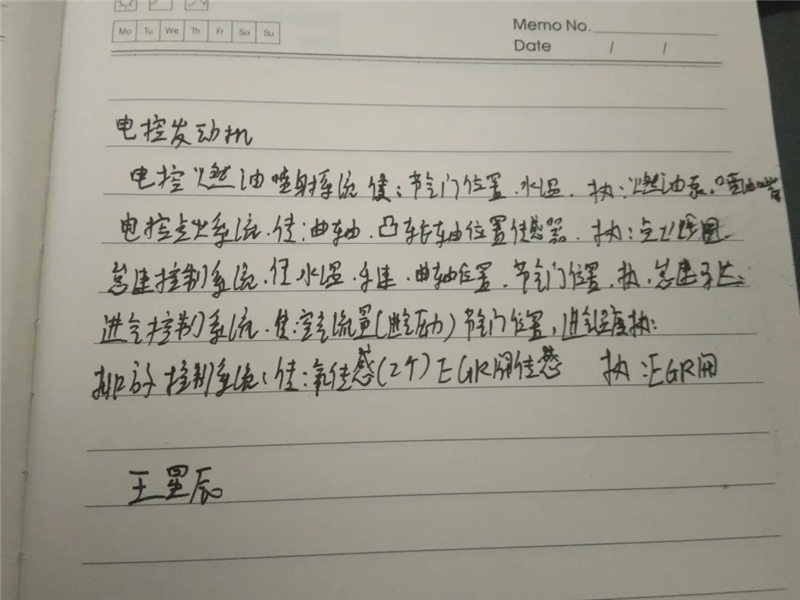 Mo Tu We Th Fr Sa Su
Memo No.
Date / /
电控发动机
电控燃油喷射系统 传：节气门位置．水温． 执：燃油泵．喷油嘴
电控点火系统．传：曲轴．凸轮轴位置传感器． 执：点火线圈
怠速控制系统．传 水温．车速．曲轴位置．节气门位置．执．怠速马达
进气控制系统．传：空气流量（进气压力）节气门位置，进气温度执：
排放控制系统：传：氧传感（2个）EGR阀传感 执：EGR阀
王星辰